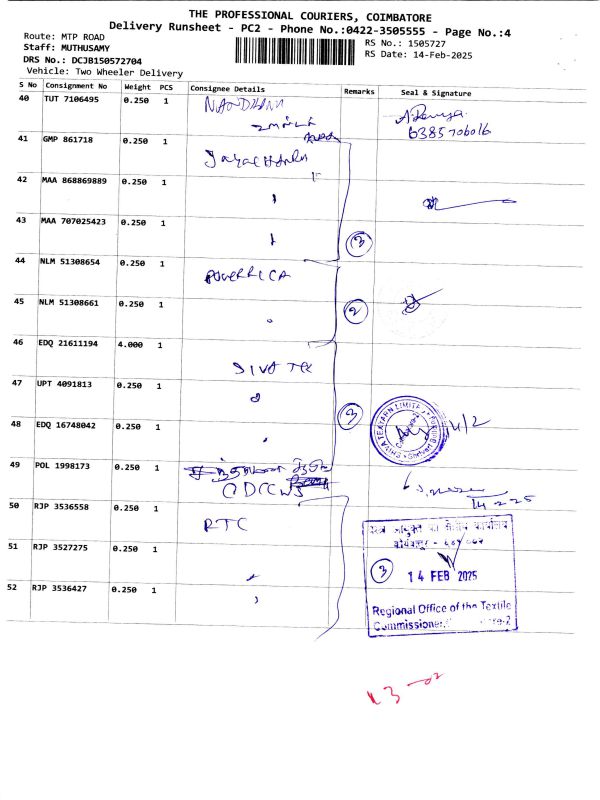 THE PROFESSIONAL COURIERS, COIMBATORE
Delivery Runsheet - PC2 - Phone No.:0422-3505555 - Page No.:4
Route: MTP ROAD
Staff: MUTHUSAMY
DRS No.: DCJB150572704
Vehicle: Two Wheeler Delivery
RS No.: 1505727
RS Date: 14-Feb-2025
S No Consignment No Weight PCS Consignee Details Remarks Seal & Signature
40 TUT 7106495 0.250 1 NANDHANA
6385706016
41 GMP 861718 0.250 1
42 MAA 868869889 0.250 1
43 MAA 707025423 0.250 1 3
44 NLM 51308654 0.250 1 POWERRICA
45 NLM 51308661 0.250 1 2
46 EDQ 21611194 4.000 1 SIVA TEX
47 UPT 4091813 0.250 1
48 EDQ 16748042 0.250 1 3 14/2
49 POL 1998173 0.250 1
CDCCWS 14-2-25
50 RJP 3536558 0.250 1 RTC
51 RJP 3527275 0.250 1
52 RJP 3536427 0.250 1
3 14 FEB 2025
Regional Office of the Textile
Commissioner